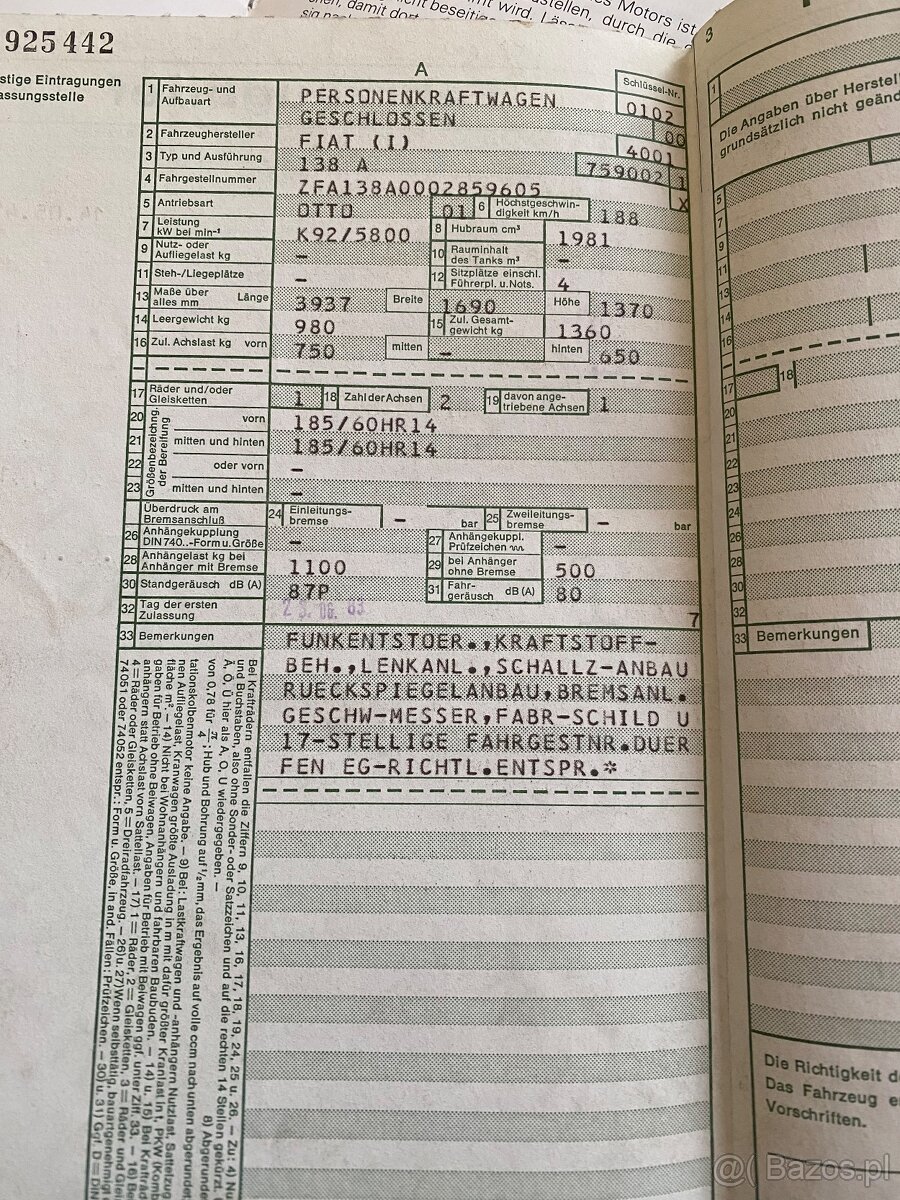 925442
A
3
stige Eintragungen
assungsstelle
Schlüssel-Nr.
1 Fahrzeug- und Aufbauart PERSONENKRAFTWAGEN 0102
GESCHLOSSEN 00
2 Fahrzeughersteller FIAT (I) 4001
3 Typ und Ausführung 138 A 759002 1
4 Fahrgestellnummer ZFA138A0002859605 X
5 Antriebsart OTTO 01 6 Höchstgeschwindigkeit km/h 188
7 Leistung kW bei min⁻¹ K92/5800 8 Hubraum cm³ 1981
9 Nutz- oder Aufliegelast kg – 10 Rauminhalt des Tanks m³ –
11 Steh-/Liegeplätze – 12 Sitzplätze einschl. Führerpl. u. Nots. 4
13 Maße über alles mm Länge 3937 Breite 1690 Höhe 1370
14 Leergewicht kg 980 15 Zul. Gesamtgewicht kg 1360
16 Zul. Achslast kg vorn 750 mitten – hinten 650
17 Räder und/oder Gleisketten 1 18 Zahl der Achsen 2 19 davon angetriebene Achsen 1
Größenbezeichnung der Bereifung
20 vorn 185/60HR14
21 mitten und hinten 185/60HR14
22 oder vorn –
23 mitten und hinten –
Überdruck am Bremsanschluß 24 Einleitungsbremse – bar 25 Zweileitungsbremse – bar
26 Anhängekupplung DIN 740..-Form u. Größe – 27 Anhängekuppl. Prüfzeichen –
28 Anhängelast kg bei Anhänger mit Bremse 1100 29 bei Anhänger ohne Bremse 500
30 Standgeräusch dB (A) 87P 31 Fahrgeräusch dB (A) 80
32 Tag der ersten Zulassung 23.06.83 7
33 Bemerkungen
FUNKENTSTOER.,KRAFTSTOFF-
BEH.,LENKANL.,SCHALLZ-ANBAU
RUECKSPIEGELANBAU,BREMSANL.
GESCHW-MESSER,FABR-SCHILD U
17-STELLIGE FAHRGESTNR.DUER
FEN EG-RICHTL.ENTSPR.*
Bei Krafträdern entfallen die Ziffern 9, 10, 11, 13, 16, 17, 18, 19, 24, 25 u. 26. – Zu: 4) Nu
und Buchstaben, also ohne Sonder- oder Satzzeichen und auf die rechten 14 Stellen gekürzt.
Ä, Ö, Ü hier als A, O, U wiedergegeben. –
von 0,78 für π/4; Hub und Bohrung auf ¹/₂ mm, das Ergebnis auf volle ccm nach unten abgerundet
tationskolbenmotor keine Angabe. – 9) Bei: Lastkraftwagen und -anhängern Nutzlast, Sattelzug
nen Aufliegelast, Kranwagen größte Ausladung in m mit dafür größter Kranlast in t, PKW (Komb
fläche m². – 14) Nicht bei Wohnanhängern und fahrbaren Baubuden. – 14) u. 15) Bei Krafträd
gaben für Betrieb ohne Beiwagen, Angaben für Betrieb mit Beiwagen ggf. unter Ziff. 33. – 16) Be
anhängern statt Achslast vorn Sattellast. – 17) 1 = Räder, 2 = Gleisketten, 3 = Räder und Glei
4 = Räder oder Gleisketten, 5 = Dreiradfahrzeug. – 26) u. 27) Wenn selbsttätig, bauartgenehmigt
74051 oder 74052 entspr.: Form u. Größe, in and. Fällen: Prüfzeichen. – 30) u. 31) Ggf. D = DIN
Die Angaben über Herstell
grundsätzlich nicht geänd
33 Bemerkungen
Die Richtigkeit d
Das Fahrzeug e
Vorschriften.
@( Bazos.pl